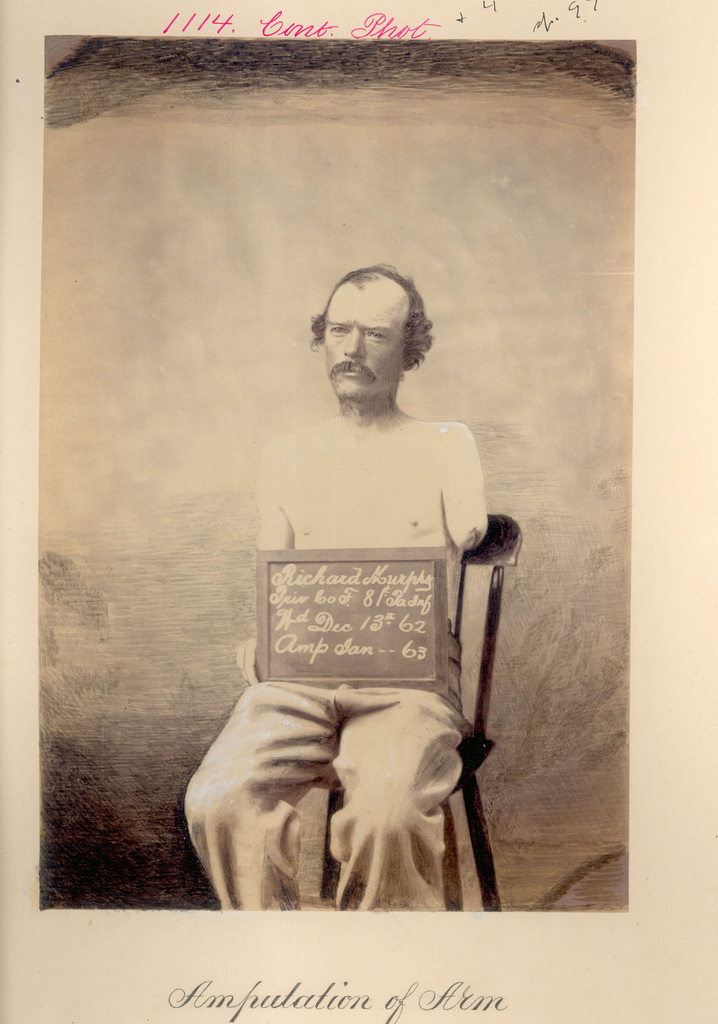 1114. Cont. Phot.
Richard Murphy
Priv Co F. 81st Pa Inf
Wd Dec 13th 62
Amp Jan -- 63
Amputation of Arm